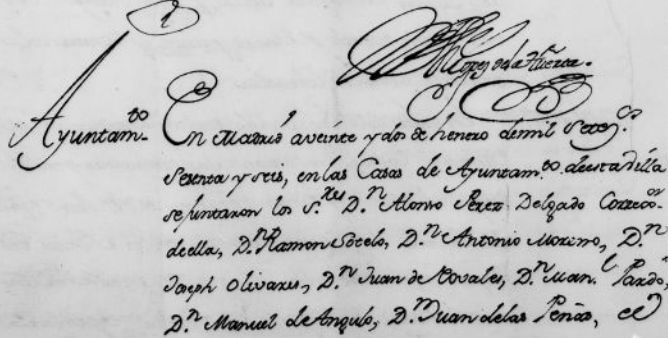 Ayuntam.to En Madrid a veinte y dos de henero de mil Setez.s
Sesenta y seis, en las Casas de Ayuntam.to de esta dilla
se juntaron los s.res D.n Alonso Perez Delgado Correg.or
de ella, D.n Ramon Sotelo, D.n Antonio Moreno, D.n
Joseph Olivares, D.n Juan de Novales, D.n Man.l Pardo,
D.n Manuel de Angulo, D.n Juan de las Peñas, el